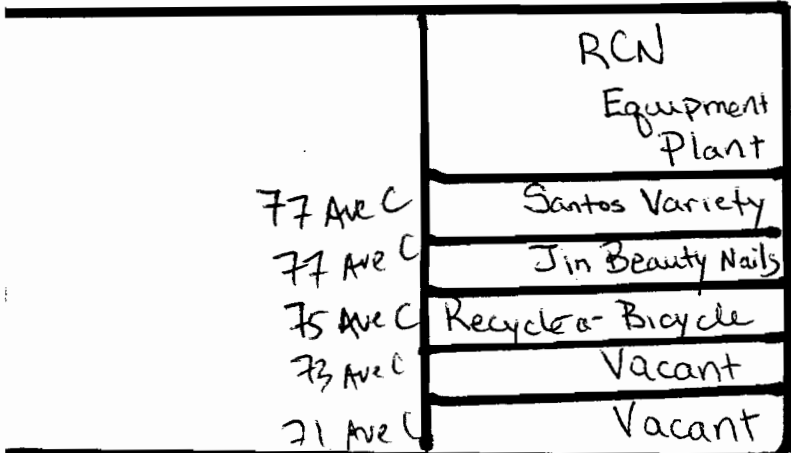 RCN
Equipment
Plant
77 Ave C Santos Variety
77 Ave C Jin Beauty Nails
75 Ave C Recycle-a-Bicycle
73 Ave C Vacant
71 Ave C Vacant